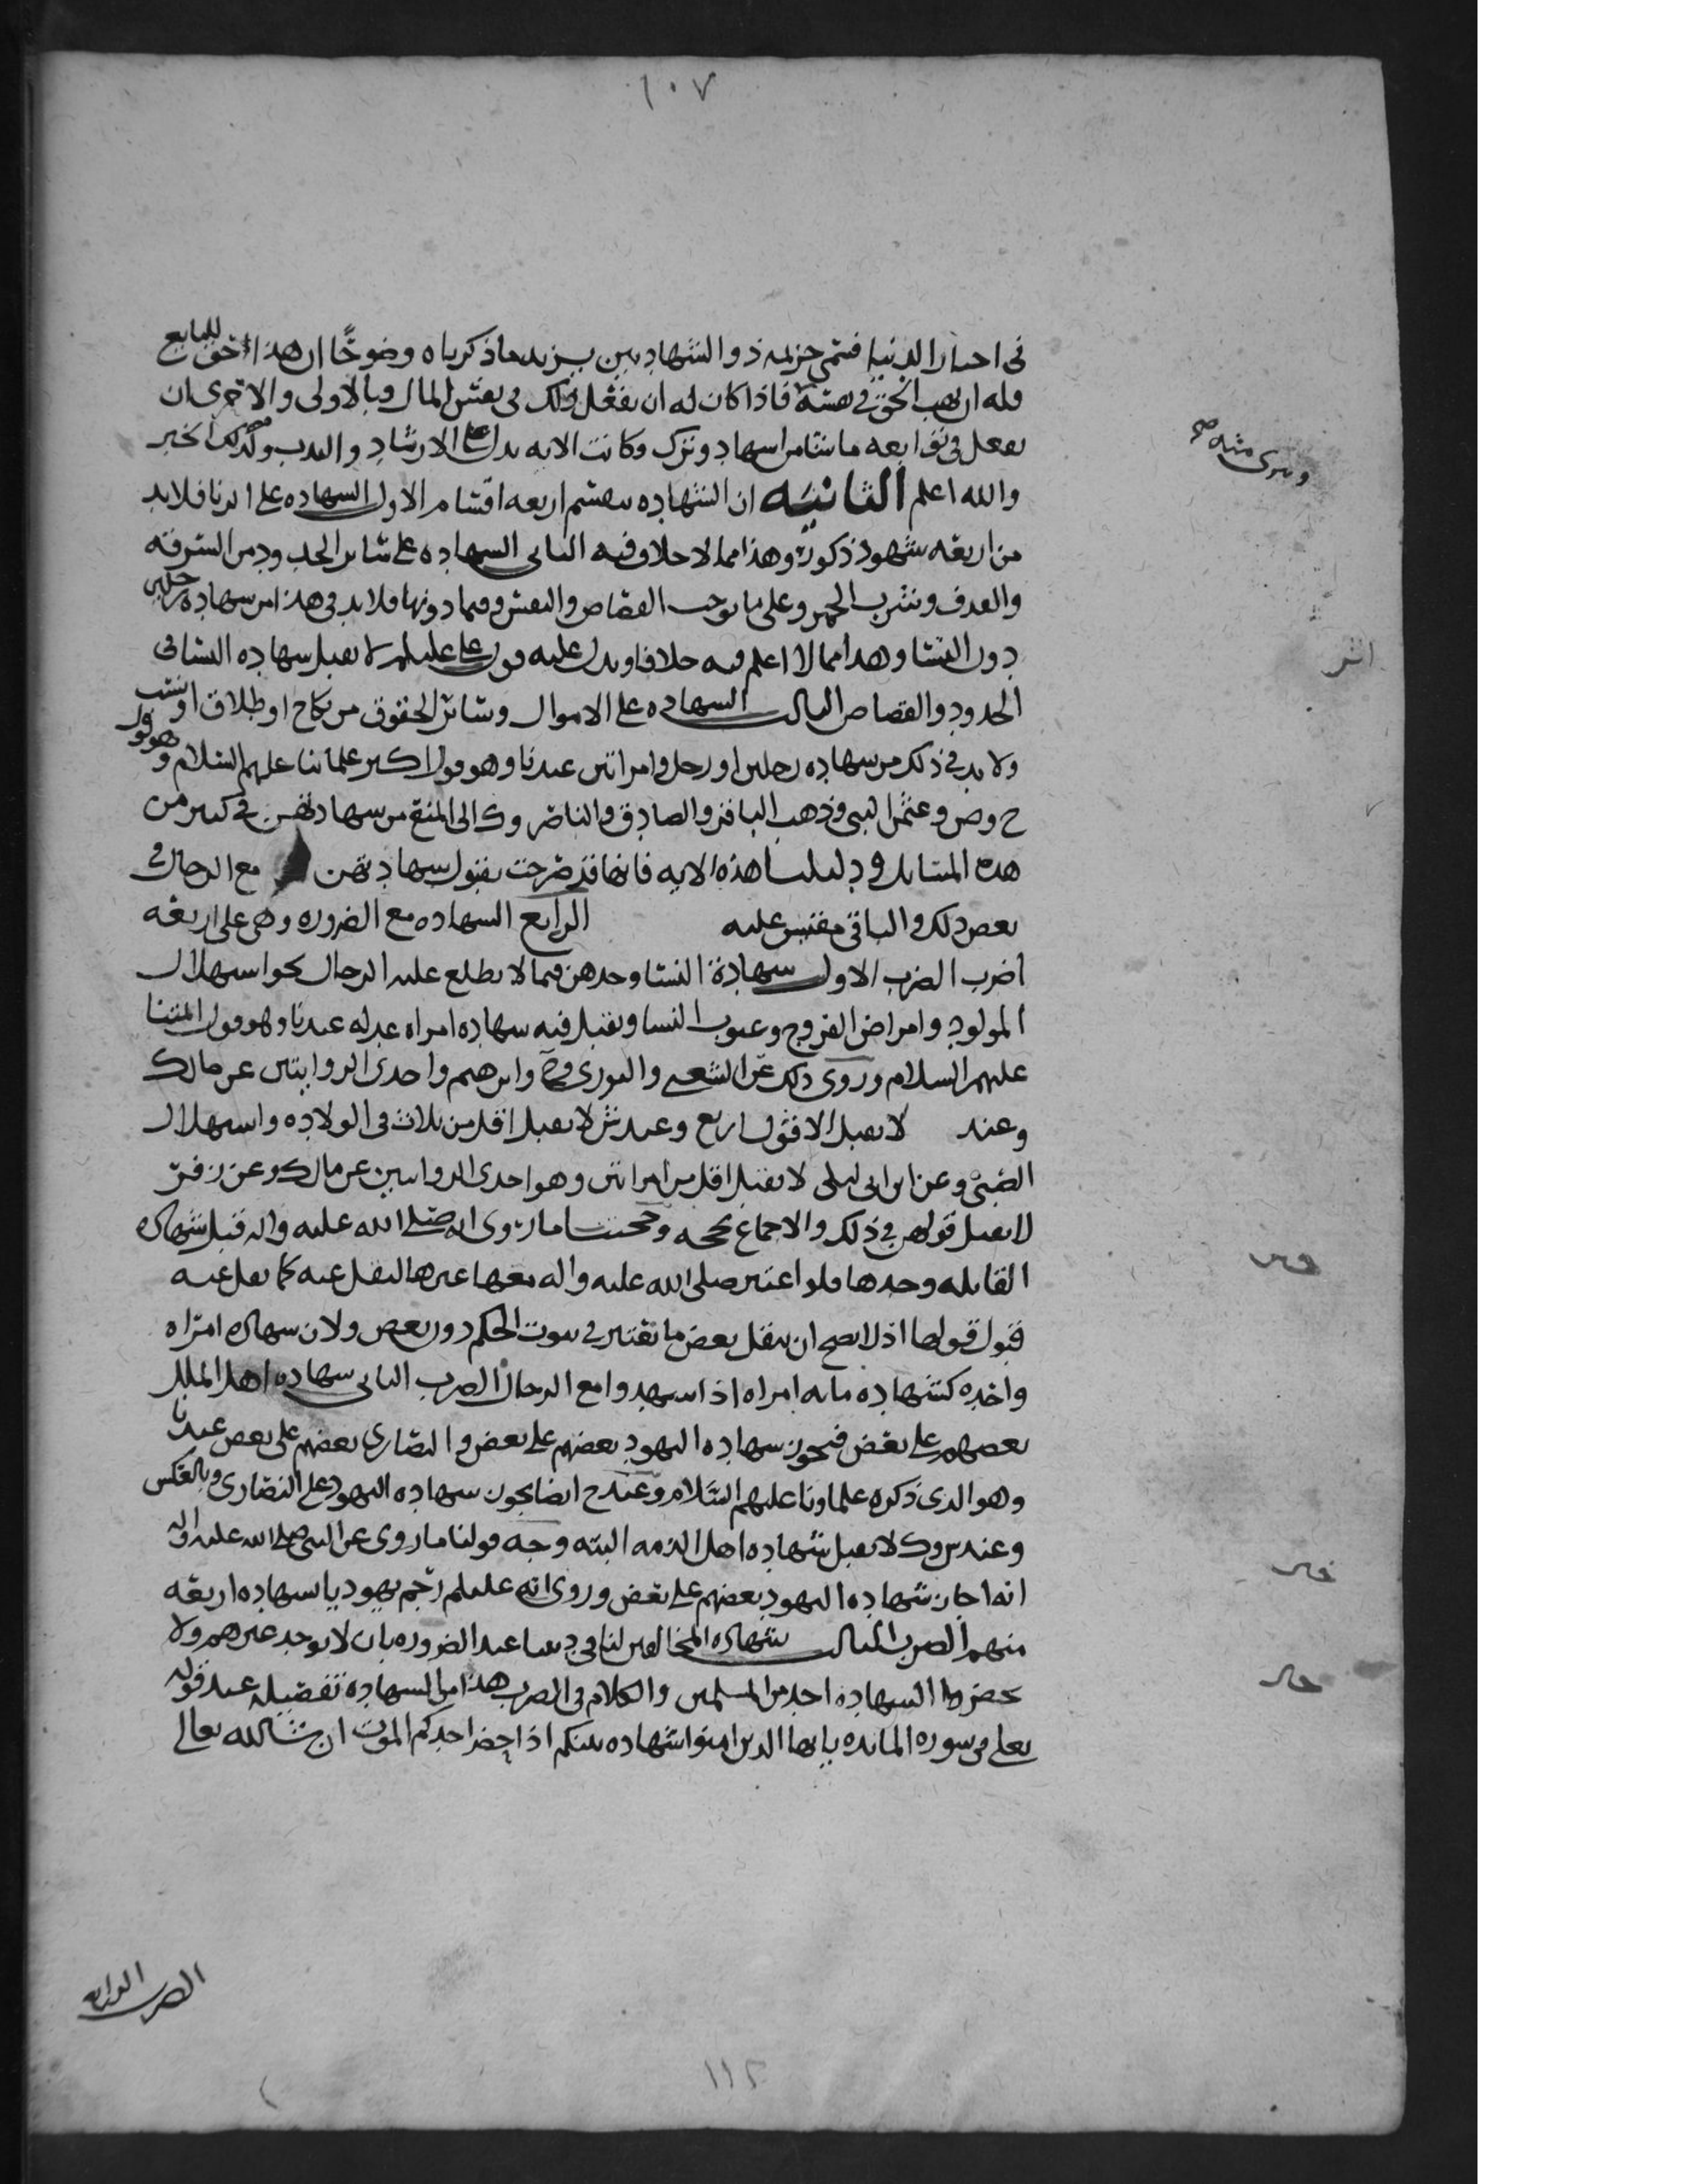 ١٠٧
فسمي خزيمه ذو الشهادتين يزيد ما ذكرناه وضوحًا ان هذا حق للبايع
فله ان يهب الحق في هبته فاذا كان له ان يفعل ذلك في نفس المال وبالاولى والاخرى ان
يفعل في توابعه ما شا من اسهاد وترك وكانت الايه تدل على الارشاد والندب وكذلك الخبر
ويسرى مثله صح
والله اعلم الثانيه ان الشهاده تنقسم اربعه اقسام الاول السهاده على الزنا فلابد
من اربعه شهود ذكورة وهذا مما لا خلاف فيه الثانى السهاده على ساير الحدود من السرقه
والقذف وشرب الخمر وعلى ما يوجب القصاص والنفس وفيما دونها فلا بد في هذا من سهاده رجلين
دون النسا وهذا مما لا اعلم فيه خلافا ويدل عليه قول على عليلم لا تقبل سهاده النسا في
اثر
الحدود والقصاص الثالث السهاده على الاموال وسائر الحقوق من نكاح او طلاق او نسب
ولا بد في ذلك من سهاده رجلين او رجل وامراتين عندنا وهو قول اكبر علمائنا عليهم السلام وهو قول
ح وص وعثمن البتى وذهب الباقر والصادق والناصر وك الى المنع من سهادتهن في كثير من
هذه المسايل ودليلنا هذه الايه فانها قد صرحت بقبول سهادتهن مع الرجال في
بعض ذلك والباقي مقيس عليه الرابع السهاده مع الضروره وهى على اربعه
اضرب الضرب الاول سهادة النسا وحدهن فيما لا يطلع عليه الرجال نحو استهلال
المولود وامراض الفروج وعيوب النسا وتقبل فيه سهاده امراه عدله عندنا وهو قول ائمتنا
عليهم السلام وروى ذلك عن الشعبى والثورى وح وابرهيم واحدى الروايتين عن مالك
وعند لا يقبل الا قول اربع وعند ش لا يقبل اقل من ثلاث في الولاده واستهلال
الصبى وعن ابن ابى ليلى لا يقبل اقل من امراتين وهو احدى الروايتين عن مالك وعن زفر
لا يقبل قولهن في ذلك والاجماع يحجه وحجتنا ما روى انه صلى الله عليه واله قبل شهاده
خبر
القابله وحدها فلو اعتبر صلى الله عليه واله معها غيرها لنقل عنه كما نقل عنه
قبول قولها اذ لا يصح ان ينقل بعض ما يعتبر في ثبوت الحكم دون بعض ولان سهاده امراه
واحده كشهاده مايه امراه اذا اسهدوا مع الرجال الضرب الثانى سهاده اهل الملل
بعضهم على بعض فيجوز سهاده اليهود بعضهم على بعض والنصارى بعضهم على بعض عندنا
وهو الذى ذكره علماونا عليهم السلام وعند ح ايضا يجوز سهاده اليهود على النصارى وبالعكس
وعند ش وك لا يقبل شهاده اهل الذمه البته وجه قولنا ما روى عن النبى صلى الله عليه واله
خبر
انه اجاز شهاده اليهود بعضهم على بعض وروى انه عليلم رجم يهوديا بسهاده اربعه
منهم الضرب الثالث شهاده المخالفين لنا في ديننا عند الضروره بان لا يوجد غيرهم ولا
يحضر السهاده احد من المسلمين والكلام في الضرب هذا من السهاده تفصيله عند قوله
تعلى في سوره المائده يايها الذين امنوا شهاده بينكم اذا حضر احدكم الموت ان شا الله تعالى
الضرب الرابع
١١٢